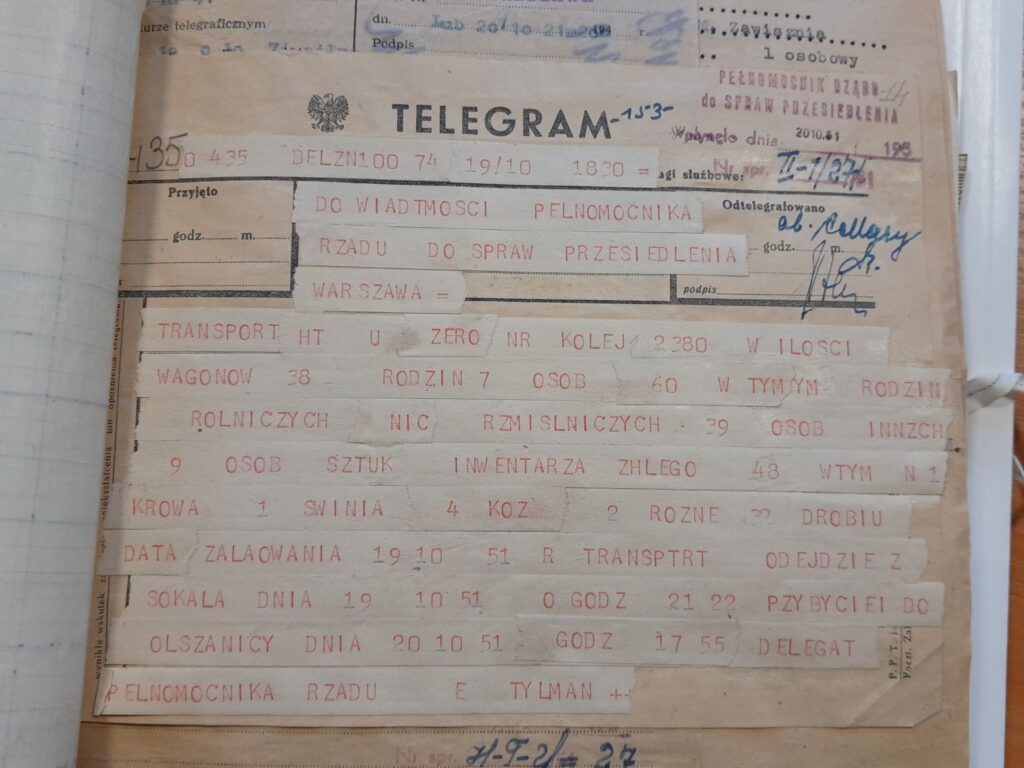 durze telegraficznym
dn. Lub 20/10 21-20 194 r.
Podpis
M. Zavisznia
1 osobowy
PEŁNOMOCNIK RZĄDU 14
do SPRAW PRZESIEDLENIA
TELEGRAM -153-
Wpłynęło dnia 2010.51 195
Nr spr. II-1/27/51
435 0 435 BELZN100 74 19/10 1830 =
agi służbowe:
Przyjęto
Odtelegrafowano
godz. m.
godz. m.
podpis
DO WIADTMOSCI PELNOMOCNIKA
RZADU DO SPRAW PRZESIEDLENIA
WARSZAWA =
TRANSPORT HT U ZERO NR KOLEJ 2380 W ILOSCI
WAGONOW 38 RODZIN 7 OSOB 60 W TYM/YM RODZIN
ROLNICZYCH NIC RZMISLNICZYCH 39 OSOB INNZCH
9 OSOB SZTUK INWENTARZA ZHLEGO 48 WTYM N 1
KROWA 1 SWINIA 4 KOZ 2 ROZNE 32 DROBIU
DATA ZALAOWANIA 19 10 51 R TRANSPTRT ODEJDZIE Z
SOKALA DNIA 19 10 51 O GODZ 21 22 PRZYBYCIEI DO
OLSZANICY DNIA 20 10 51 GODZ 17 55 DELEGAT
PELNOMOCNIKA RZADU E TYLMAN ++
Nr spr. 27